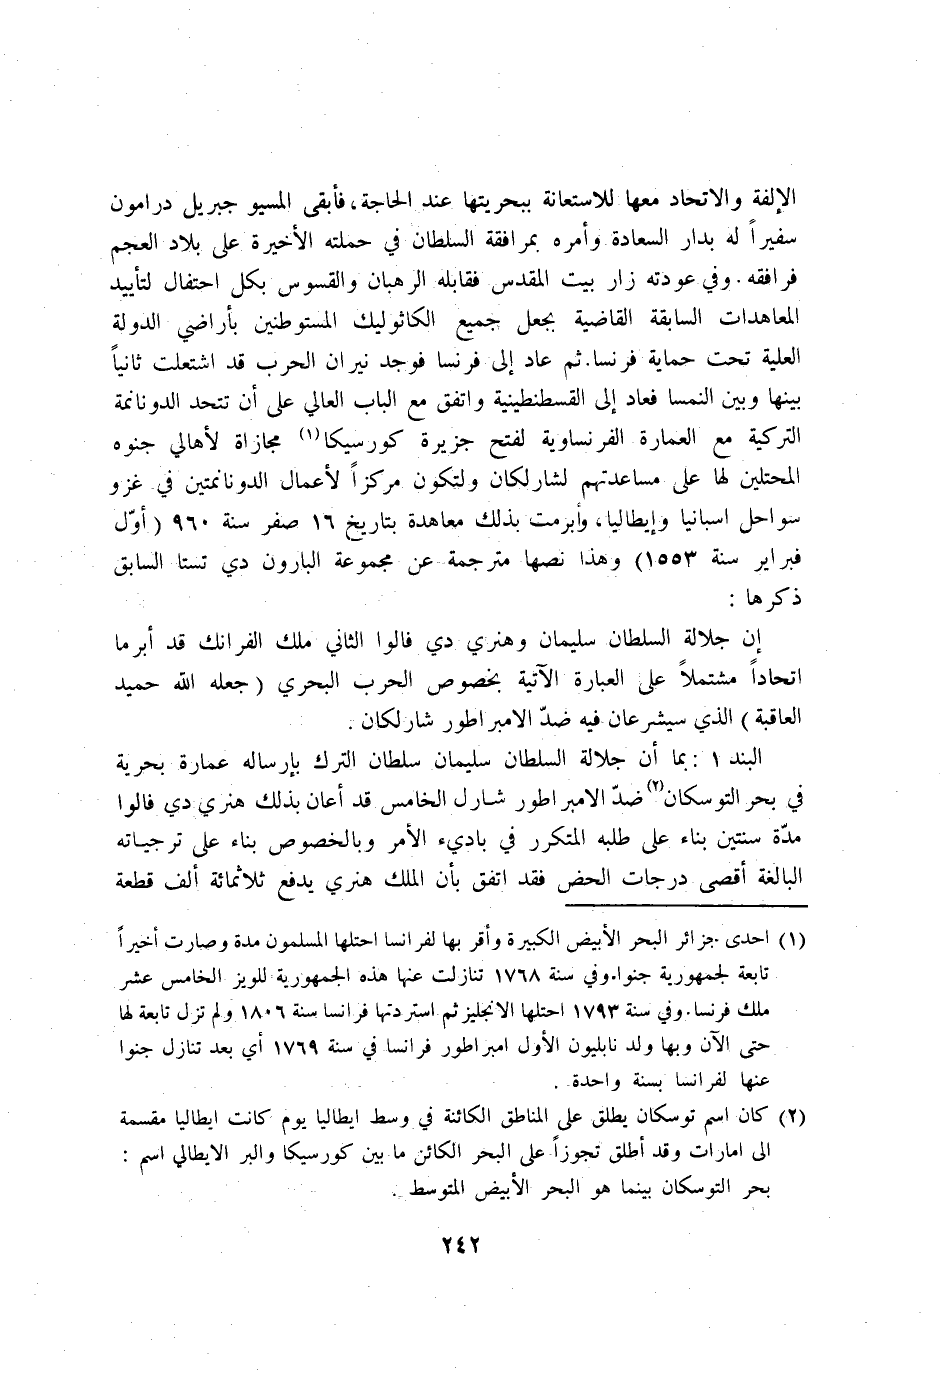 الإلفة والاتحاد معها للاستعانة ببحريتها عند الحاجة، فأبقى المسيو جبريل درامون
سفيراً له بدار السعادة وأمره بمرافقة السلطان في حملته الأخيرة على بلاد العجم
فرافقه. وفي عودته زار بيت المقدس فقابله الرهبان والقسوس بكل احتفال لتأييد
المعاهدات السابقة القاضية بجعل جميع الكاثوليك المستوطنين بأراضي الدولة
العلية تحت حماية فرنسا. ثم عاد إلى فرنسا فوجد نيران الحرب قد اشتعلت ثانياً
بينها وبين النمسا فعاد إلى القسطنطينية واتفق مع الباب العالي على أن تتحد الدونانمة
التركية مع العمارة الفرنساوية لفتح جزيرة كورسيكا(١) مجازاة لأهالي جنوه
المحتلين لها على مساعدتهم لشارلكان ولتكون مركزاً لأعمال الدونانمتين في غزو
سواحل اسبانيا وإيطاليا، وأبرمت بذلك معاهدة بتاريخ ١٦ صفر سنة ٩٦٠ ( أوّل
فبراير سنة ١٥٥٣) وهذا نصها مترجمة عن مجموعة البارون دي تستا السابق
ذكرها :
إن جلالة السلطان سليمان وهنري دي فالوا الثاني ملك الفرانك قد أبرما
اتحاداً مشتملاً على العبارة الآتية بخصوص الحرب البحري ( جعله الله حميد
العاقبة ) الذي سيشرعان فيه ضدّ الامبراطور شارلكان .
البند ١ : بما أن جلالة السلطان سليمان سلطان الترك بإرساله عمارة بحرية
في بحر التوسكان(٢) ضدّ الامبراطور شارل الخامس قد أعان بذلك هنري دي فالوا
مدّة سنتين بناء على طلبه المتكرر في باديء الأمر وبالخصوص بناء على ترجياته
البالغة أقصى درجات الحض فقد اتفق بأن الملك هنري يدفع ثلاثمائة ألف قطعة
(١) احدى جزائر البحر الأبيض الكبيرة وأقر بها لفرانسا احتلها المسلمون مدة وصارت أخيراً
تابعة لجمهورية جنوا. وفي سنة ١٧٦٨ تنازلت عنها هذه الجمهورية للويز الخامس عشر
ملك فرنسا. وفي سنة ١٧٩٣ احتلها الانجليز ثم استردتها فرانسا سنة ١٨٠٦ ولم تزل تابعة لها
حتى الآن وبها ولد نابليون الأول امبراطور فرانسا في سنة ١٧٦٩ أي بعد تنازل جنوا
عنها لفرانسا بسنة واحدة .
(٢) كان اسم توسكان يطلق على المناطق الكائنة في وسط ايطاليا يوم كانت ايطاليا مقسمة
الى امارات وقد أطلق تجوزاً على البحر الكائن ما بين كورسيكا والبر الايطالي اسم :
بحر التوسكان بينما هو البحر الأبيض المتوسط .
٢٤٢